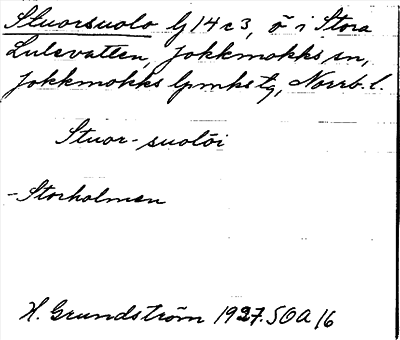 Stuorsuolo lj 14 c 3, ö i Stora
Lulevatten, Jokkmokks sn,
Jokkmokks lpmks tg, Norrb. l.
Stuor-suolōi
-Storholmen
H. Grundström 1927. SOA 16